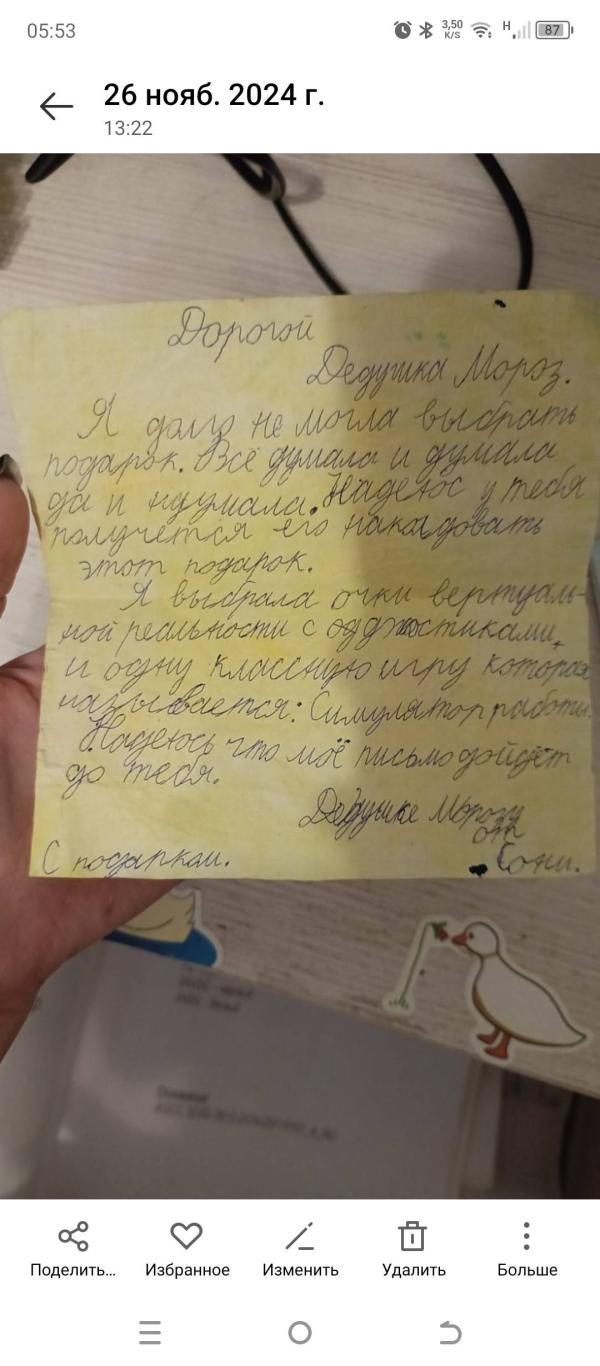 05:53
3,50 K/S
H
87
26 нояб. 2024 г.
13:22
Дорогой
Дедушка Мороз.
Я долго не могла выбрать
подарок. Всё думала и думала
да и идумала. Надеюс у тебя
получется его накалдовать
этот подарок.
Я выбрала очки вертуаль-
ной реальности с
и одну классную игру которая
называется: Симулятор работы.
Надеюсь что моё письмо дойдёт
до тебя.
Дедушке Морозу
от
С подаркам. Сони.
Поделить...
Избранное
Изменить
Удалить
Больше